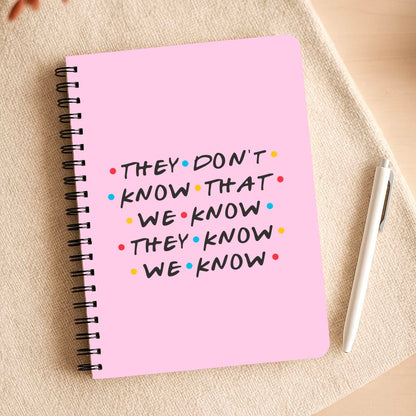 THEY DON'T
KNOW THAT
WE KNOW
THEY KNOW
WE KNOW